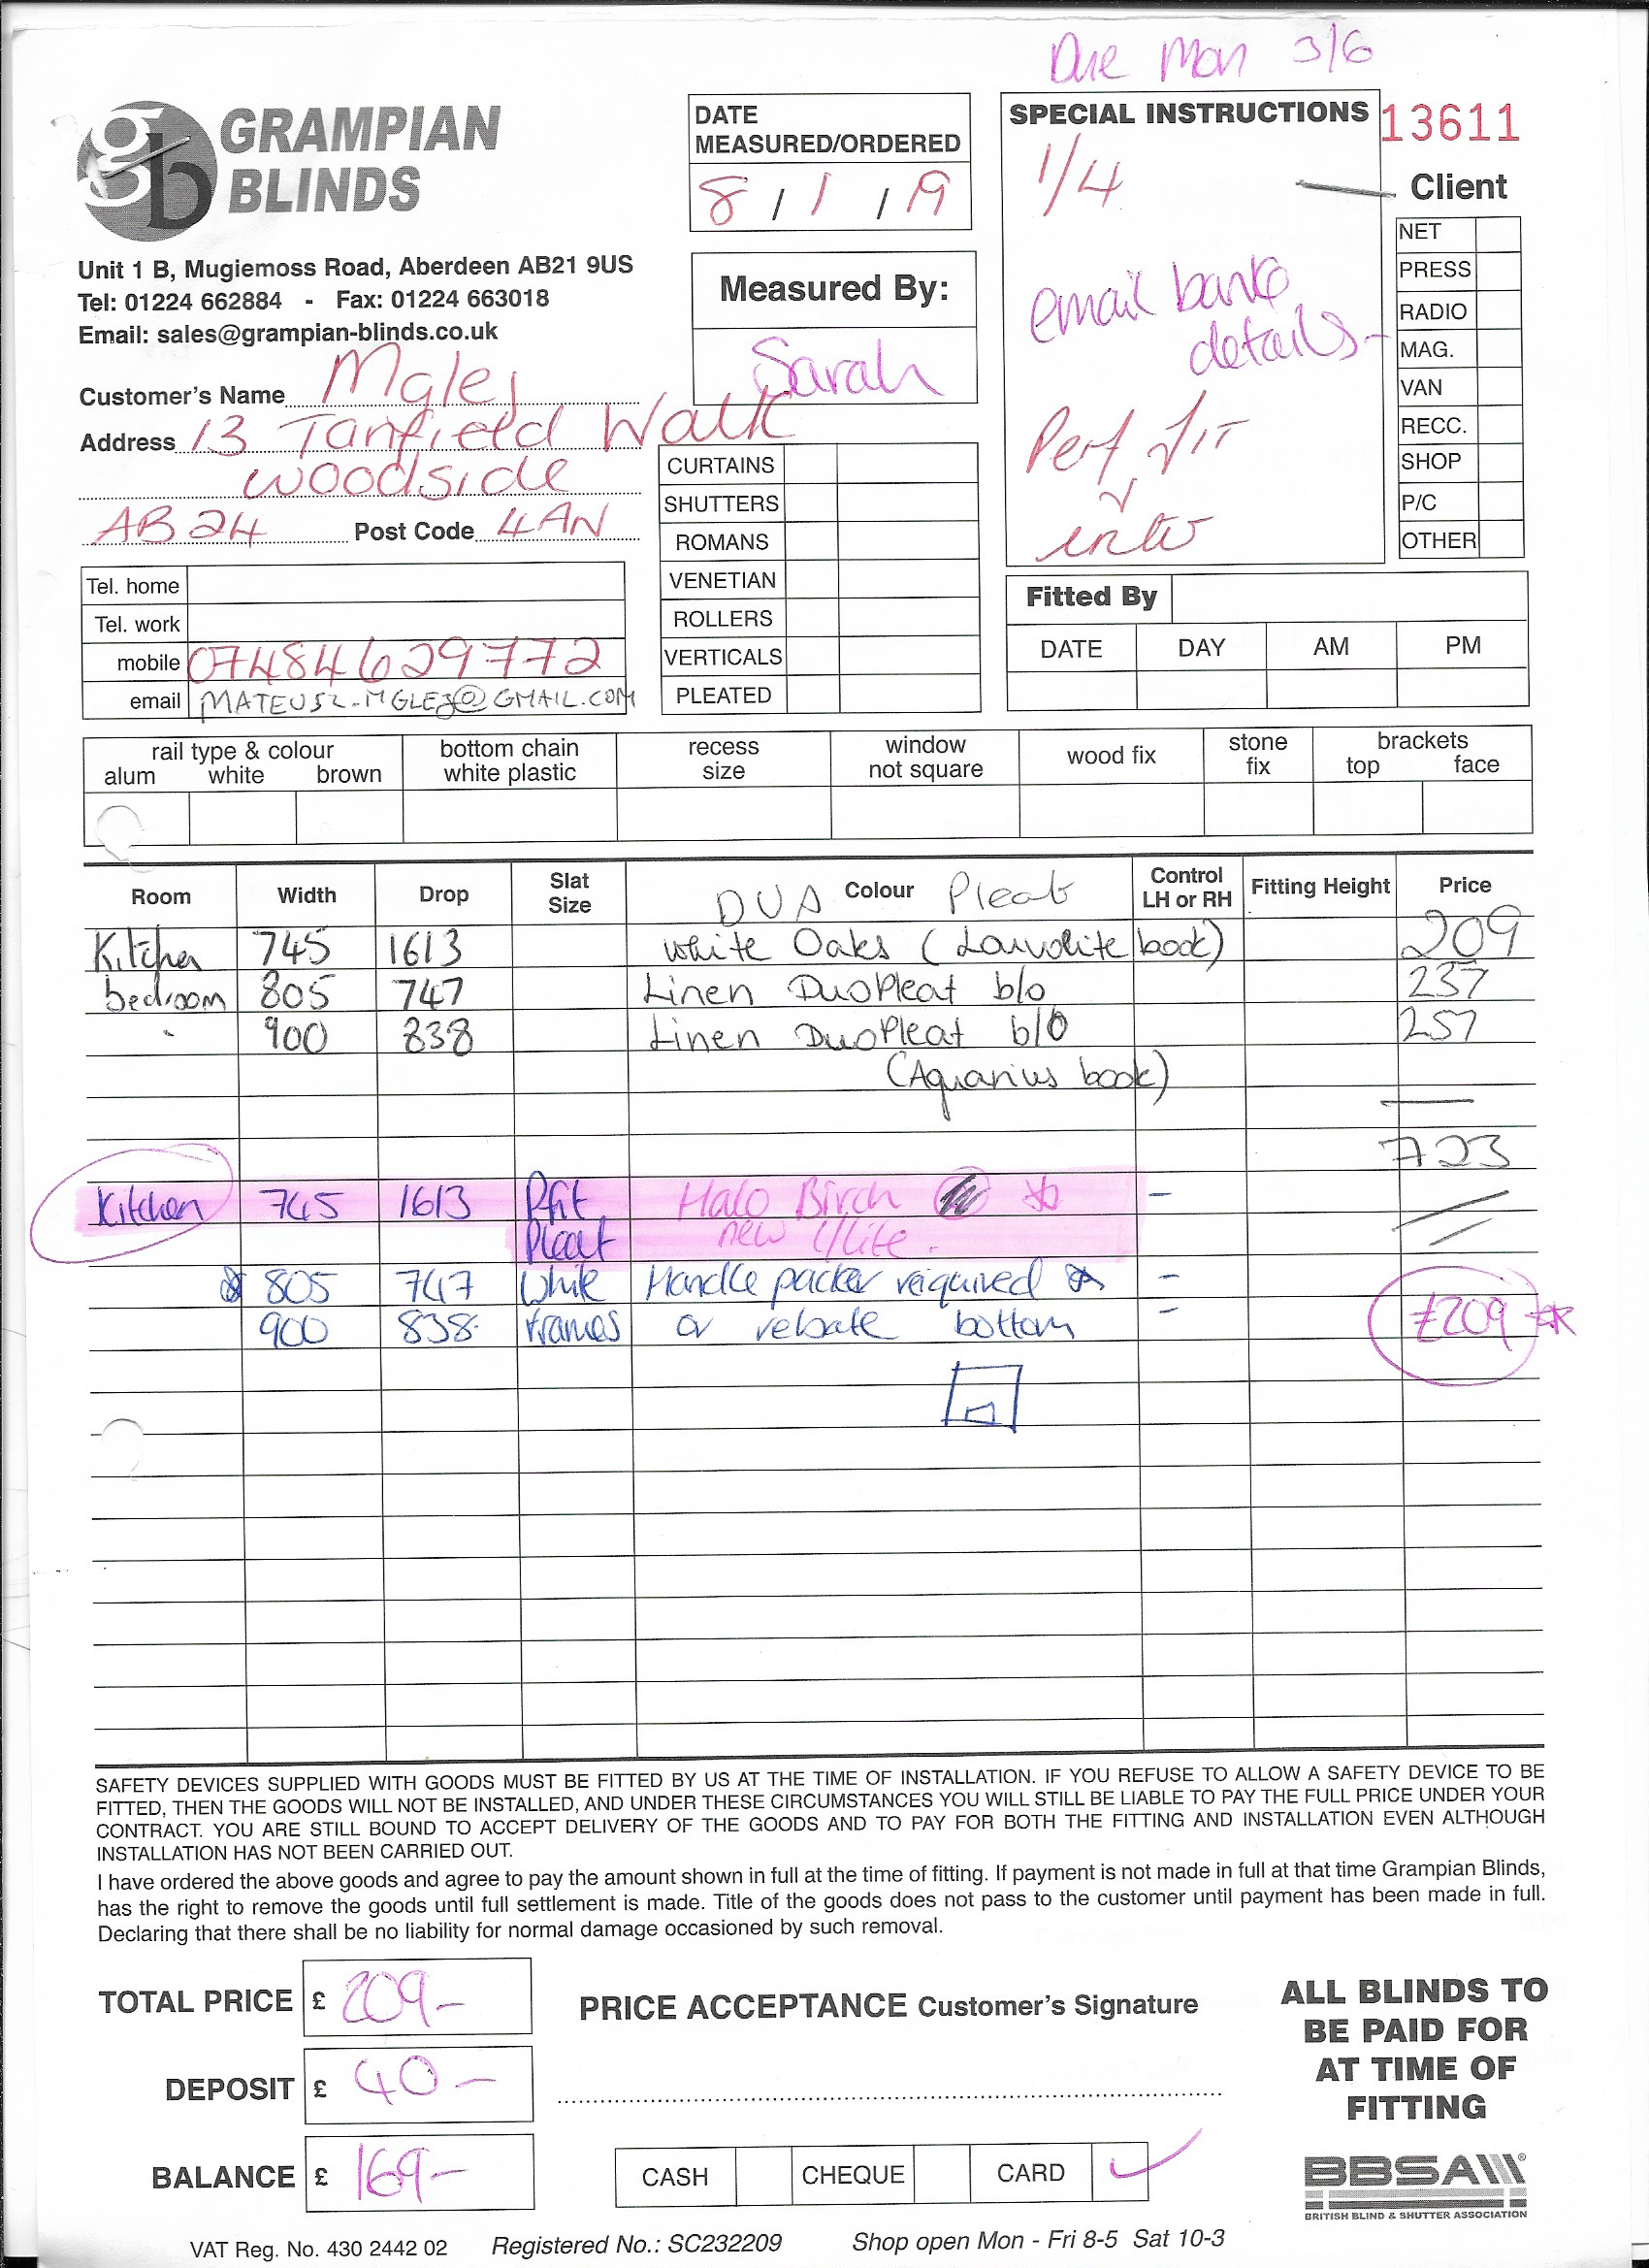 Due Mon 3/6
GRAMPIAN
BLINDS
gb
Unit 1 B, Mugiemoss Road, Aberdeen AB21 9US
Tel: 01224 662884 - Fax: 01224 663018
Email: sales@grampian-blinds.co.uk
DATE
MEASURED/ORDERED
8 / 1 / 19
Measured By:
Sarah
SPECIAL INSTRUCTIONS
1/4
email bank
details
Perf fit
into
13611
Client
NET
PRESS
RADIO
MAG.
VAN
RECC.
SHOP
P/C
OTHER
Customer's Name Mglej
Address 13 Tanfield Walk
Woodside
AB24 Post Code 4AN
Tel. home
Tel. work
mobile 07484629772
email MATEUSZ.MGLEJ@GMAIL.COM
CURTAINS
SHUTTERS
ROMANS
VENETIAN
ROLLERS
VERTICALS
PLEATED
Fitted By
DATE DAY AM PM
rail type & colour
alum white brown
bottom chain
white plastic
recess
size
window
not square
wood fix
stone
fix
brackets
top face
Room Width Drop Slat Size DUA Colour Pleat Control LH or RH Fitting Height Price
Kitchen 745 1613 white Oaks (Louvolite book) 209
bedroom 805 747 Linen DuoPleat b/o 257
" 900 838 Linen DuoPleat b/o 257
(Aquarius book)
723
Kitchen 745 1613 Pfit Halo Birch -
Pleat new l/lite.
805 747 White Handle packer reiquired -
900 838 frames or rebate bottom - £209
SAFETY DEVICES SUPPLIED WITH GOODS MUST BE FITTED BY US AT THE TIME OF INSTALLATION. IF YOU REFUSE TO ALLOW A SAFETY DEVICE TO BE
FITTED, THEN THE GOODS WILL NOT BE INSTALLED, AND UNDER THESE CIRCUMSTANCES YOU WILL STILL BE LIABLE TO PAY THE FULL PRICE UNDER YOUR
CONTRACT. YOU ARE STILL BOUND TO ACCEPT DELIVERY OF THE GOODS AND TO PAY FOR BOTH THE FITTING AND INSTALLATION EVEN ALTHOUGH
INSTALLATION HAS NOT BEEN CARRIED OUT.
I have ordered the above goods and agree to pay the amount shown in full at the time of fitting. If payment is not made in full at that time Grampian Blinds,
has the right to remove the goods until full settlement is made. Title of the goods does not pass to the customer until payment has been made in full.
Declaring that there shall be no liability for normal damage occasioned by such removal.
TOTAL PRICE £ 209-
DEPOSIT £ 40-
BALANCE £ 169-
PRICE ACCEPTANCE Customer's Signature
CASH CHEQUE CARD ✓
ALL BLINDS TO
BE PAID FOR
AT TIME OF
FITTING
BBSA
BRITISH BLIND & SHUTTER ASSOCIATION
VAT Reg. No. 430 2442 02 Registered No.: SC232209 Shop open Mon - Fri 8-5 Sat 10-3